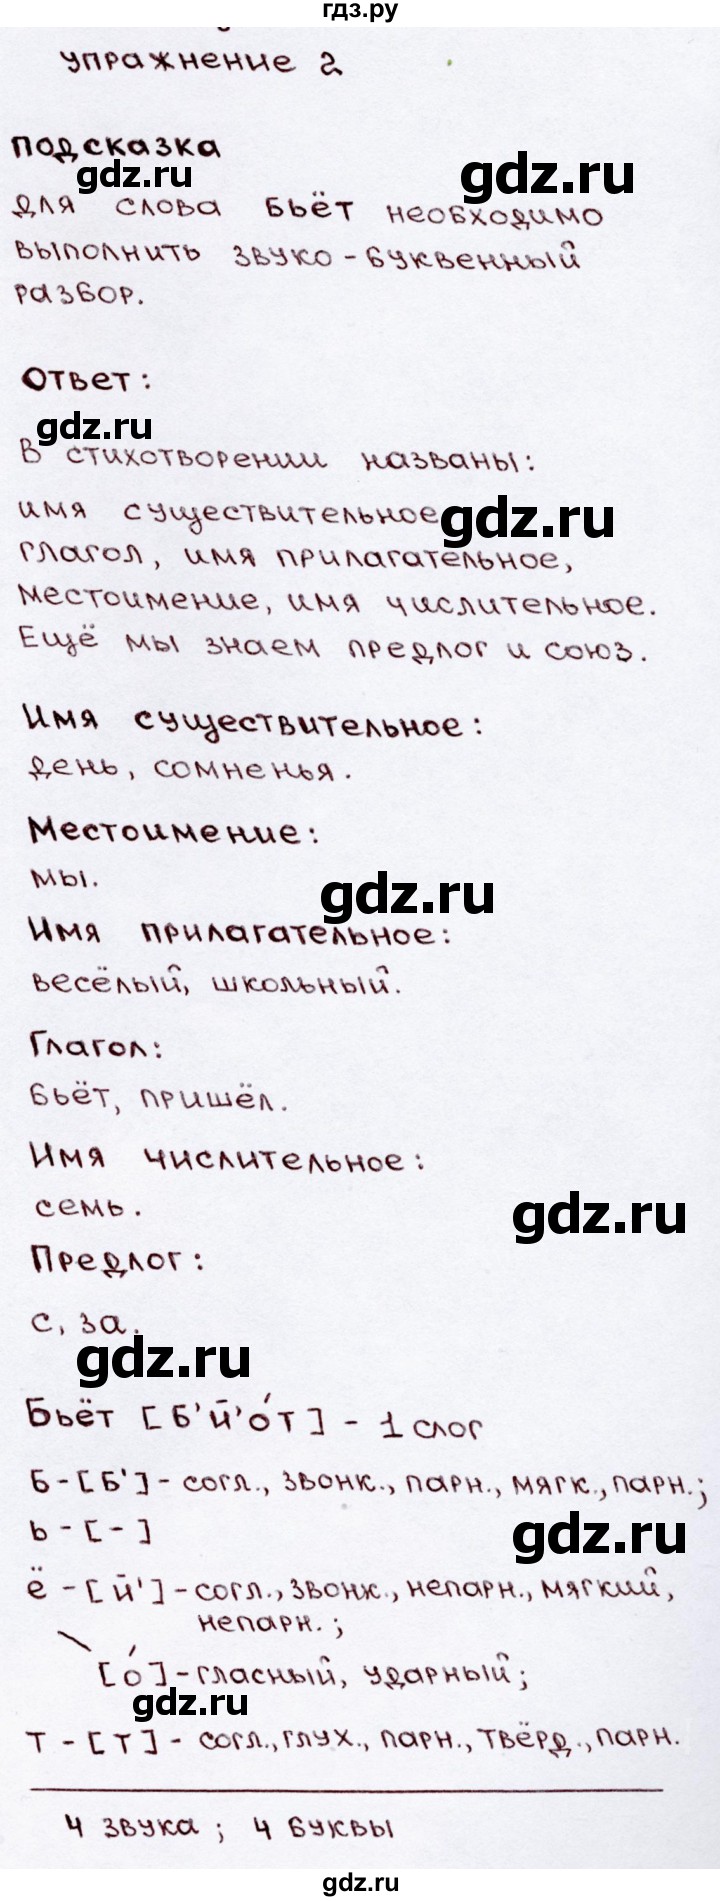 гдз.ру
упражнение 2
подсказка
gdz.ru
gdz.ru
для слова бьёт необходимо
выполнить звуко-буквенный
разбор.
Ответ:
gdz.ru
В стихотворении названы:
имя существительное
gdz.ru
глагол, имя прилагательное,
местоимение, имя числительное.
Ещё мы знаем предлог и союз.
Имя существительное:
день, сомненья.
Местоимение:
мы.
gdz.ru
Имя прилагательное:
весёлый, школьный.
Глагол:
бьёт, пришёл.
Имя числительное:
семь.
gdz.ru
Предлог:
с, за.
gdz.ru
Бьёт [б'й'о́т] - 1 слог
б-[б']-согл., звонк., парн., мягк., парн.;
ь-[-]
gdz.ru
ё-[й']-согл., звонк., непарн., мягкий,
непарн.;
[о́]-гласный, ударный;
gdz.ru
т-[т]- согл., глух., парн., твёрд., парн.
4 звука; 4 буквы
gdz.ru